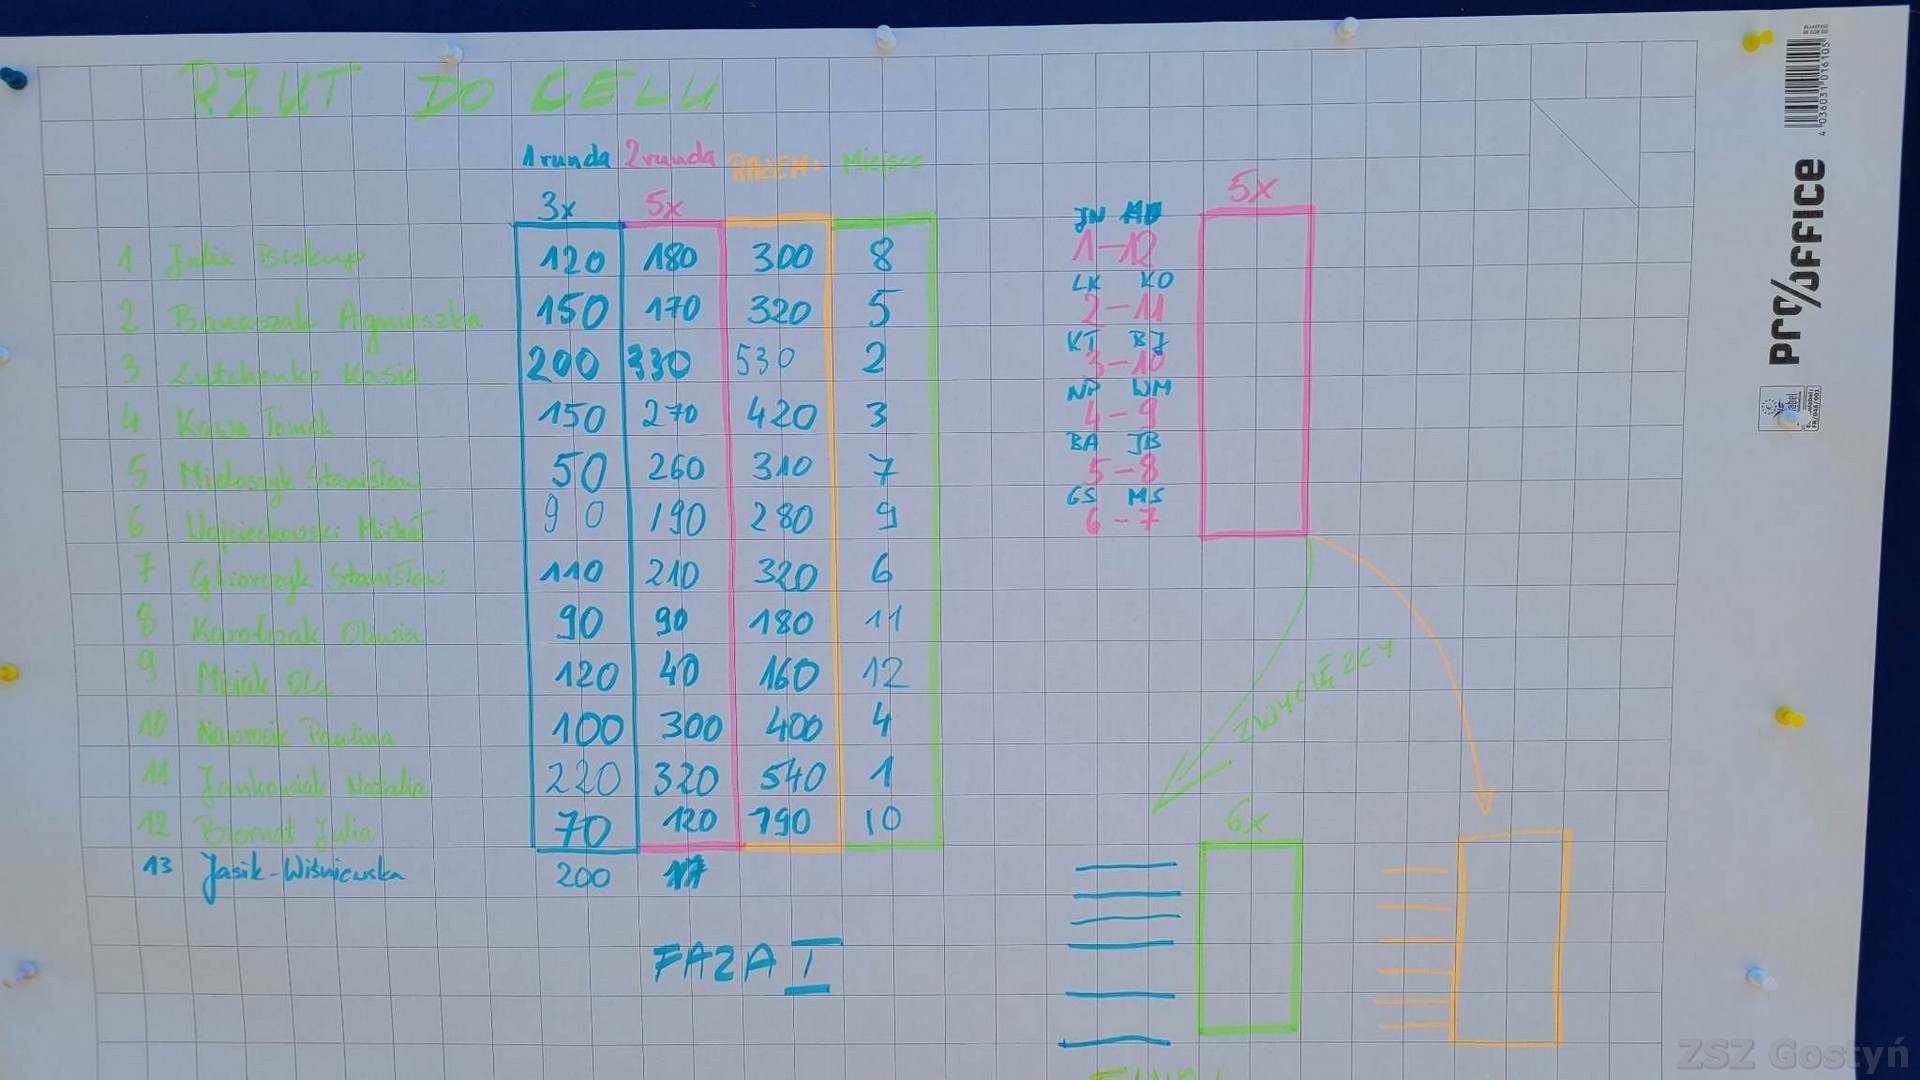 RZUT DO CELU
1 runda 2 runda RAZEM: Miejsce
3x 5x
1 Julia Biskup 120 180 300 8
2 Banaszak Agnieszka 150 170 320 5
3 Lutchenko Kasia 200 330 530 2
4 Kawa Tomek 150 270 420 3
5 Mieloszyk Stanisław 50 260 310 7
6 Wojciechowski Michał 90 190 280 9
7 Stanisław 110 210 320 6
8 Karolczak Oliwia 90 90 180 11
9 Misiak Ola 120 40 160 12
10 Nawrocik Paulina 100 300 400 4
11 Jankowiak Natalia 220 320 540 1
12 Biernat Julia 70 120 190 10
13 Jasik-Wiśniewska 200
FAZA I
5x
JN
1-12
LK KO
2-11
KT BJ
3-10
NP WM
4-9
BA JB
5-8
GS MS
6-7
ZWYCIĘZCY
6x
FINAŁ
4 036031 016105
PRO/OFFICE
ZSZ Gostyń